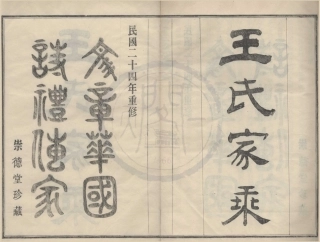 王氏家乘
民國二十四年重修
文章華國
詩禮傳家
崇德堂珍藏